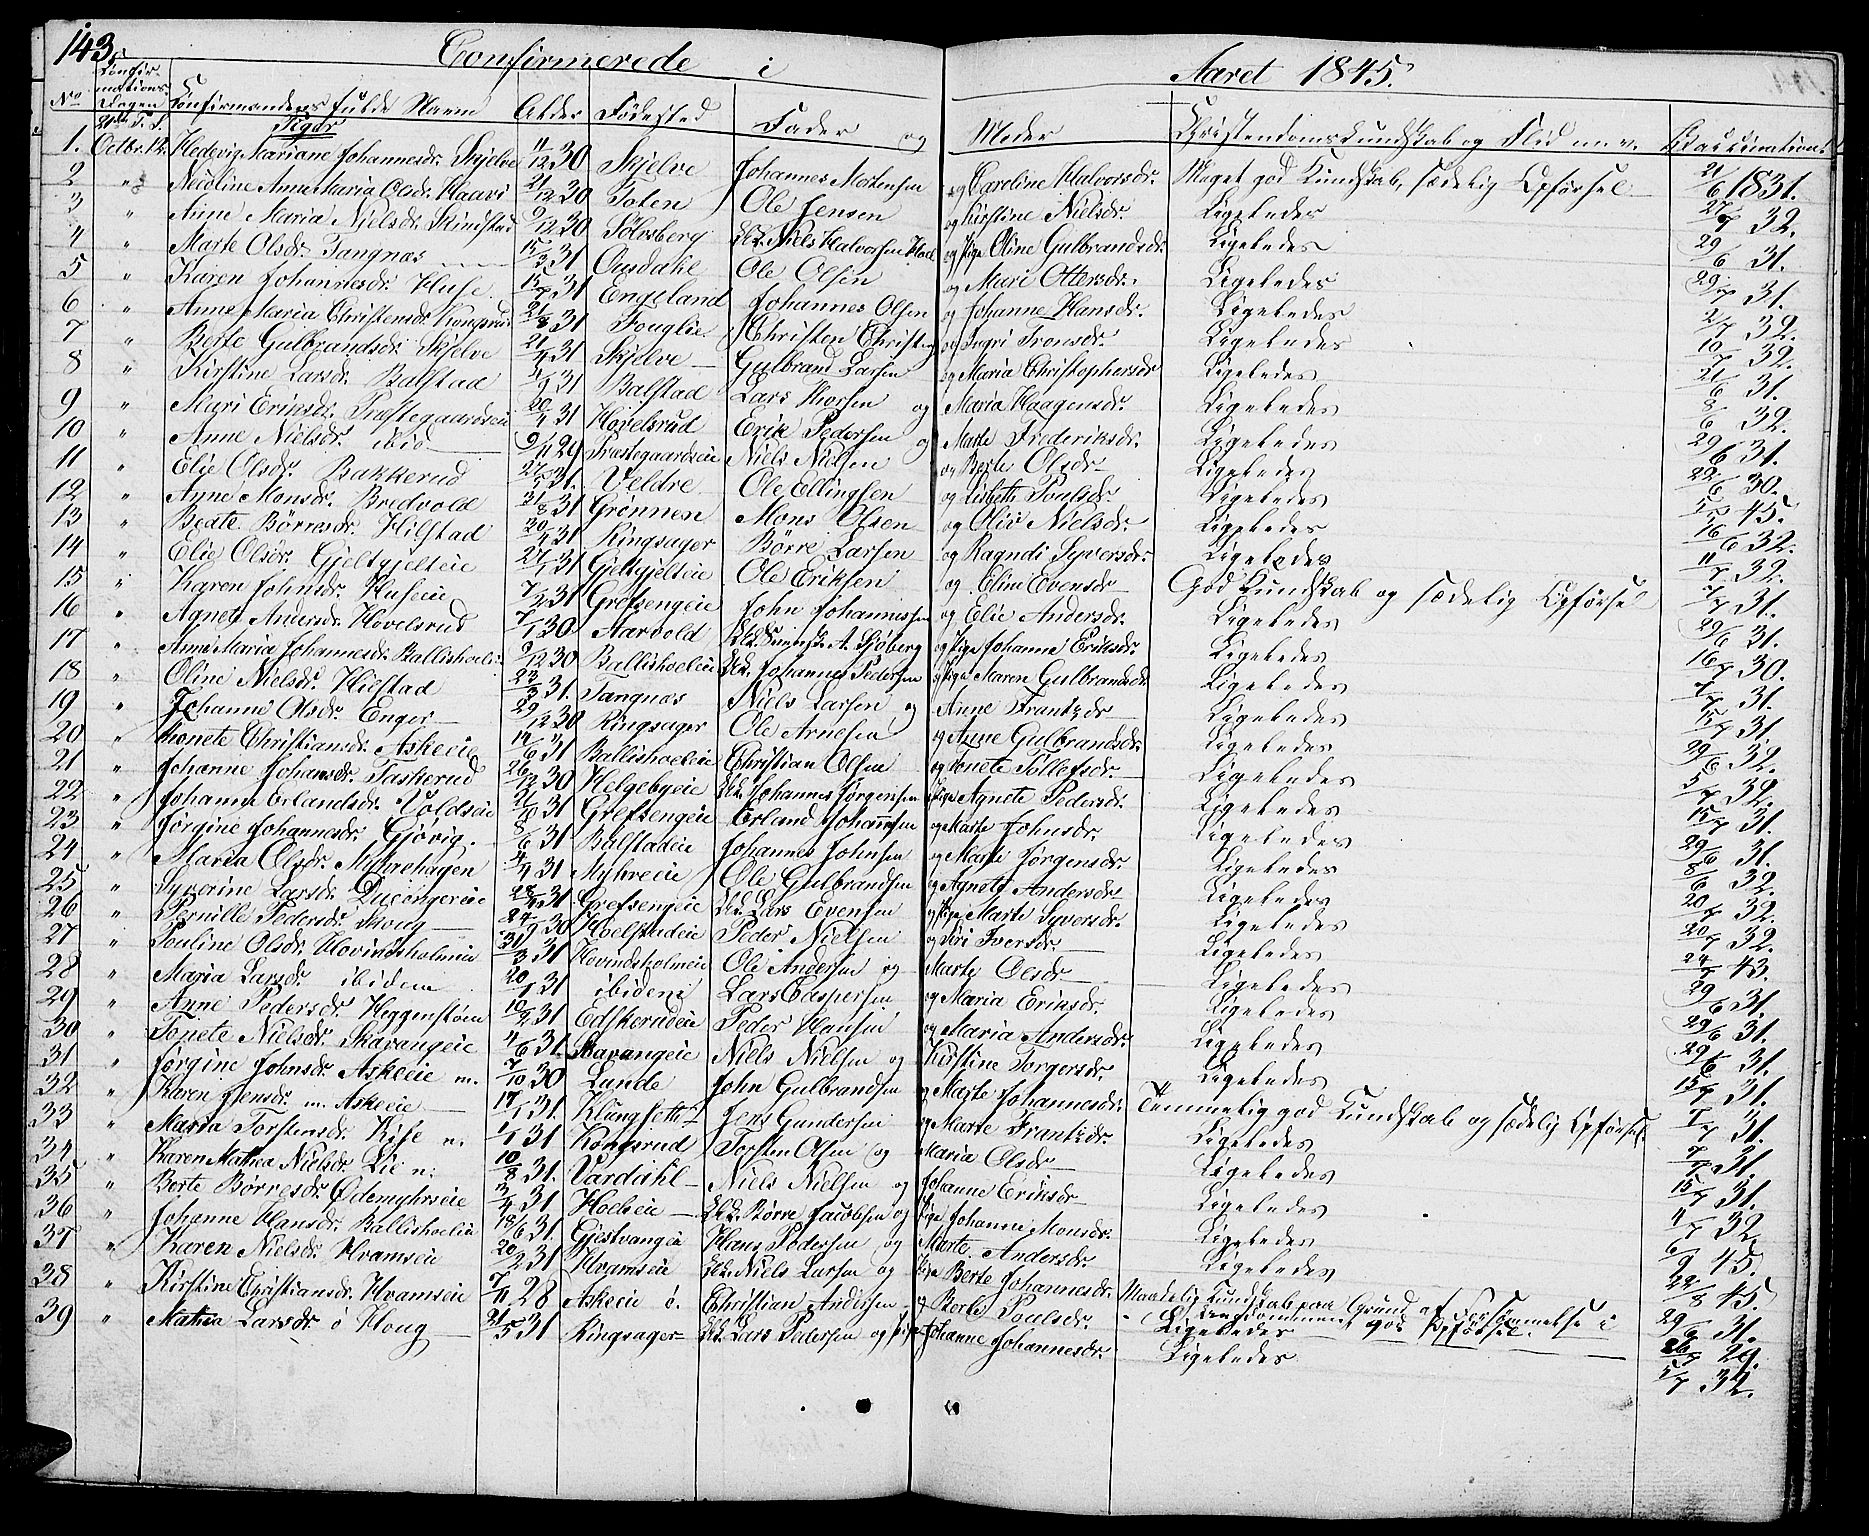 143.
Confirmerede i Aaret 1845.
No. Confirmations Dagen Confirmandens fulde Navn Alder Fødested Fader og Moder Christendoms Kundskab og Flid m.v. Vaccination
Piger
1. Octbr. 12. Hedevig Mariane Johannesdr. Skjelve 11/12 30 Skjelve Johannes Mortensen og Caroline Halvorsdr. Meget god Kundskab, sædelig Opførsel 21/6 1831.
2 " Nicoline Anne Maria Olsdr. 21/12 30 Toten Ole Jensen og Kirstine Nielsdr. Ligeledes 27/7 32.
3 " Anne Maria Nielsdr. 9/12 30 Sølvsberg Niels Halvorsen og Pige Oline Gulbrandsdr. Ligeledes 29/6 31.
4 " Marte Olsdr. Tangnæs 15/3 31 Ousdahl Ole Olsen og Mari Ottersdr. Ligeledes 29/7 31.
5 " Karen Johannesdr. Huse 15/7 31 Engeland Johannes Olsen og Johanne Hansdr. Ligeledes 2/7 32.
6 " Anne Maria Christensdr. Kongsrud 21/8 31 Fouglie Christen Christens og Ingri Tronsdr. Ligeledes 10/7 32.
7 " Berte Gulbrandsdr. Skjelve 21/4 31 Skjelve Gulbrand Larsen og Maria Christophersdr Ligeledes 21/6 31.
8 " Kirstine Larsdr. Balstad 31 Balstad Lars Thorsen og Maria Haagensdr. Ligeledes 8/6 32.
9 " Mari Eriksdr. Præstegaardseie 20/4 31 Hovelsrud Erik Pedersen og Marte Frederiksdr. Ligeledes 29/6 31.
10 " Anne Nielsdr. ibid 9/11 29 Præstegaardseie Niels Nielsen og Berte Olsdr. Ligeledes 22/6 30.
11 " Elie Olsdr. Bakkerud 31. Veldre Ole Ellingsen og Lisbeth Poulsdr. Ligeledes 45.
12 " Anne Monsdr. Bredvold 31/8 31 Grønnen Mons Olsen og Oliv Nielsdr. Ligeledes 16/6 32.
13 " Beate Børresdr. Hilstad 30/4 31 Ringsager Børre Larsen og Ragndi Syversdr. Ligeledes 11/7 32.
14 " Elie Olsdr. Gjeltgjelteie 27/1 31 Gjeltgjelteie Ole Eriksen og Eline Evensdr God Kundskab og sædelig Opførsel 7/7 31.
15 " Karen Johnsdr. Huseeie 7/2 31 Grefsengeie John Johannessen og Elie Andersdr. Ligeledes 29/6 31.
16 " Agnete Andersdr. Hovelsrud 7/1 30 Aarvold A. Sjøberg og Pige Johanne Eriksdr. Ligeledes 16/7 30.
17 " Anne Maria Johannesdr. Ballishoeleie 9/12 30 Ballishoeleie Johannes Pedersen og Pige Maren Gulbrandsdr. Ligeledes 31.
18 " Oline Nielsdr. Hilstad 23/3 31. Tangnæs Niels Larsen og Anne Frantzdr Ligeledes 15/7 31
19 " Johanne Olsdr. Enger 29/12 30 Ringsager Ole Arnesen og Anne Gulbrandsdr. Ligeledes 29/6 32.
20 " Thonete Christiansdr. Askeeie 14/6 31 Ballishoeleie Christian Olsen og Tonete Tollefsdr. Ligeledes 5/7 32.
21 " Johanne Johansdr. Taskerud 26/12 30 Helgebyeie Johannes Jørgensen Pige Agnete Pedersdr. Ligeledes 15/7 31.
22 " Johanne Erlandsdr. Voldseie 31 Grefsengeie Erland Johannsen og Marte Johnsdr. Ligeledes 29/6 31.
23 " Jørgine Johannesdr. Gjøvig. 8/6 31 Balstadeie Johannes Johnsen og Marte Jørgensdr. Ligeledes 8/6 32.
24 " Maria Olsdr. Myhrehagen 4/4 31 Myhreeie Ole Gulbrandsen og Agnete Andersdr. Ligeledes 20/7 32.
25 " Syverine Larsdr. 28/4 31 Grefsengeie Lars Evensen og Pige Marte Syversdr. Ligeledes 20/7 32.
26 " Pernille Pedersdr. Skoug 24/9 30 Hoelstadeie Peder Nielsen og Siri Iversdr. Ligeledes 24/7 43.
27 " Pouline Olsdr. Hovindsholmeie 31/3 31 Hovindsholmeie Ole Andersen og Marte Olsdr Ligeledes 29/6 31.
28 " Maria Larsdr. ibidem 20/1 31 ibidem Lars Caspersen og Maria Eriksdr. Ligeledes 29/6 31.
29 " Anne Pedersdr. Heggenstøen 10/2 31 Edskerudeie Peder Hansen og Maria Andersdr. Ligeledes 29/6 31.
30 " Tonete Nielsdr. Skavangeie 4/6 31 Skavangeie Niels Nielsen og Kirstine Torgersdr. Ligeledes 15/7 31.
31 " Jørgine Johnsdr. Askeeie m. 7/10 30 Lunde John Gulbrandsen og Marte Johannesdr. Temmelig god Kundskab og sædelig Opførsel 31.
32 " Karen Jensdr. m. Askeeie 17/1 31. Jens Gundersen og Marte Frantzdr. Ligeledes 7/7 31.
33 " Maria Torstensdr. Kise n. 1/1 31 Kongsrud Torsten Olsen og Maria Olsdr Ligeledes 15/7 31.
34 " Karen Mathea Nielsdr. Lie n. 10/8 31. Vardahl Niels Nielsen og Johanne Eriksdr Ligeledes 11/7 32.
35 " Berte Børresdr. Ødemyhrseie 31 Hoeleie Børre Jacobsen og Pige Johanne Monsdr. Ligeledes 6/9 45.
36 " Johanne Hansdr. Ballishoeleie 18/6 31. Gjestvangeie Hans Pedersen og Marte Andersdr. Ligeledes 22/8 45.
37 " Karen Nielsdr. Hvamseie 20/2 31 Hvamseie Niels Larsen og Pige Berte Johannesdr. Maadelig Kundskab paa Grund af Forsømmelse i Ungdommen god Opførsel. 29/6 31.
38 " Kirstine Christiansdr. Hvamseie 7/11 28 Askeeie ö. Christian Andersen og Berte Poulsdr. Ligeledes 26/7 29.
39 " Mathea Larsdr. ö Houg 21/5 31 Ringsager Lars Pedersen og Pige Johanne Johannesdr. Ligeledes 5/7 32.